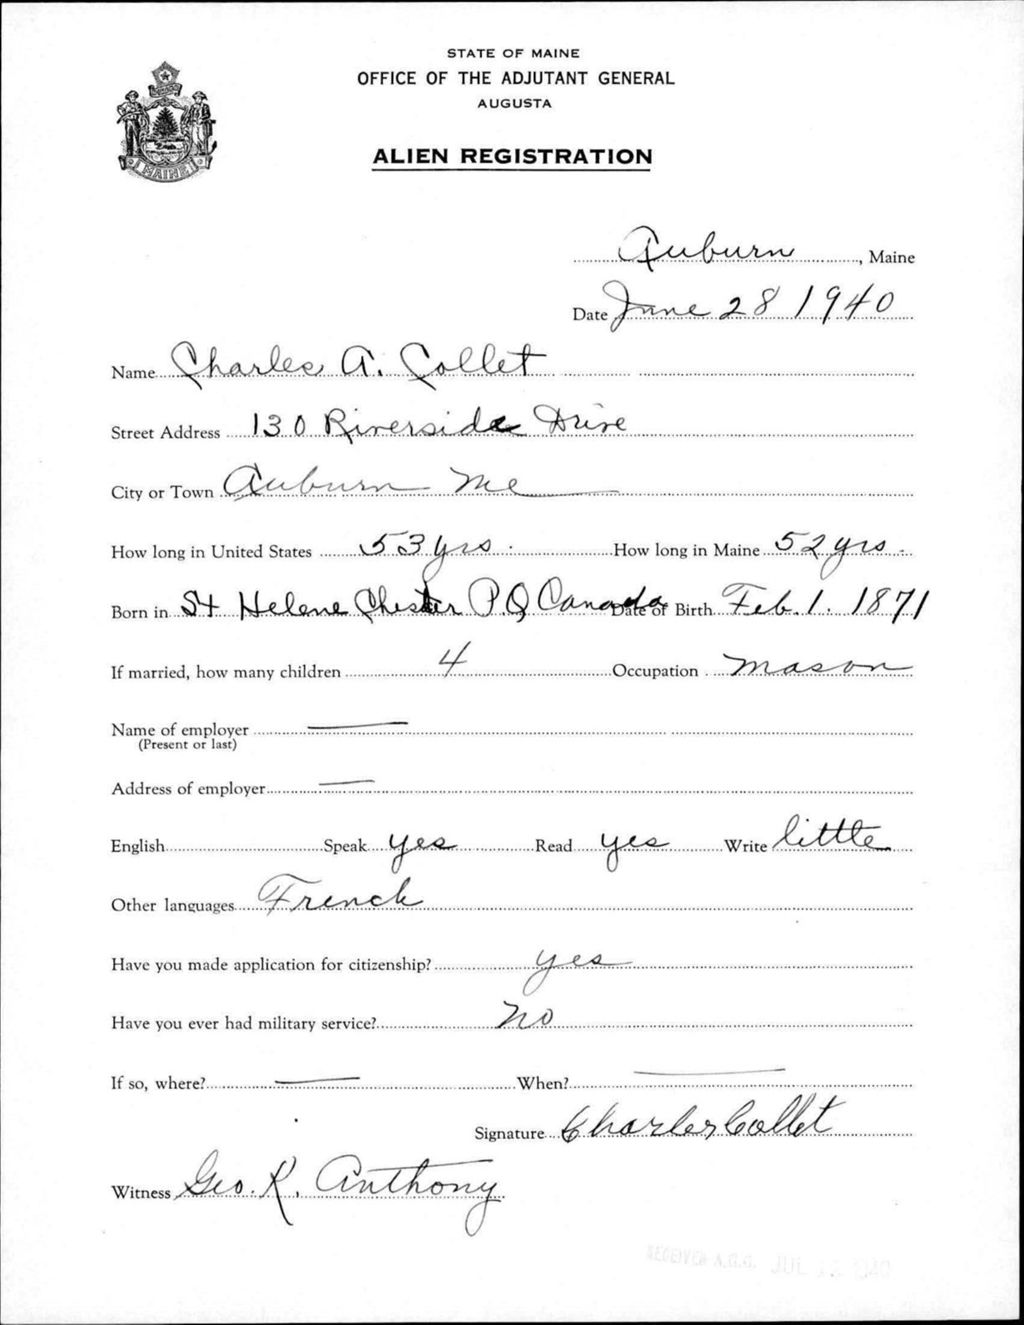 STATE OF MAINE
OFFICE OF THE ADJUTANT GENERAL
AUGUSTA
ALIEN REGISTRATION
MAINE
Auburn, Maine
Date June 28 1940
Name Charles A. Collet
Street Address 130 Riverside Drive
City or Town Auburn Me
How long in United States 53 yrs. How long in Maine 52 yrs.
Born in St Helene Chester P.Q Canada Date of Birth Feb. 1. 1871
If married, how many children 4 Occupation Mason
Name of employer —
(Present or last)
Address of employer —
English Speak yes Read yes Write little
Other languages French
Have you made application for citizenship? yes
Have you ever had military service? No
If so, where? — When? —
Signature Charles Collet
Witness Geo. K. Anthony
RECEIVED A.G.O. JUL 1940